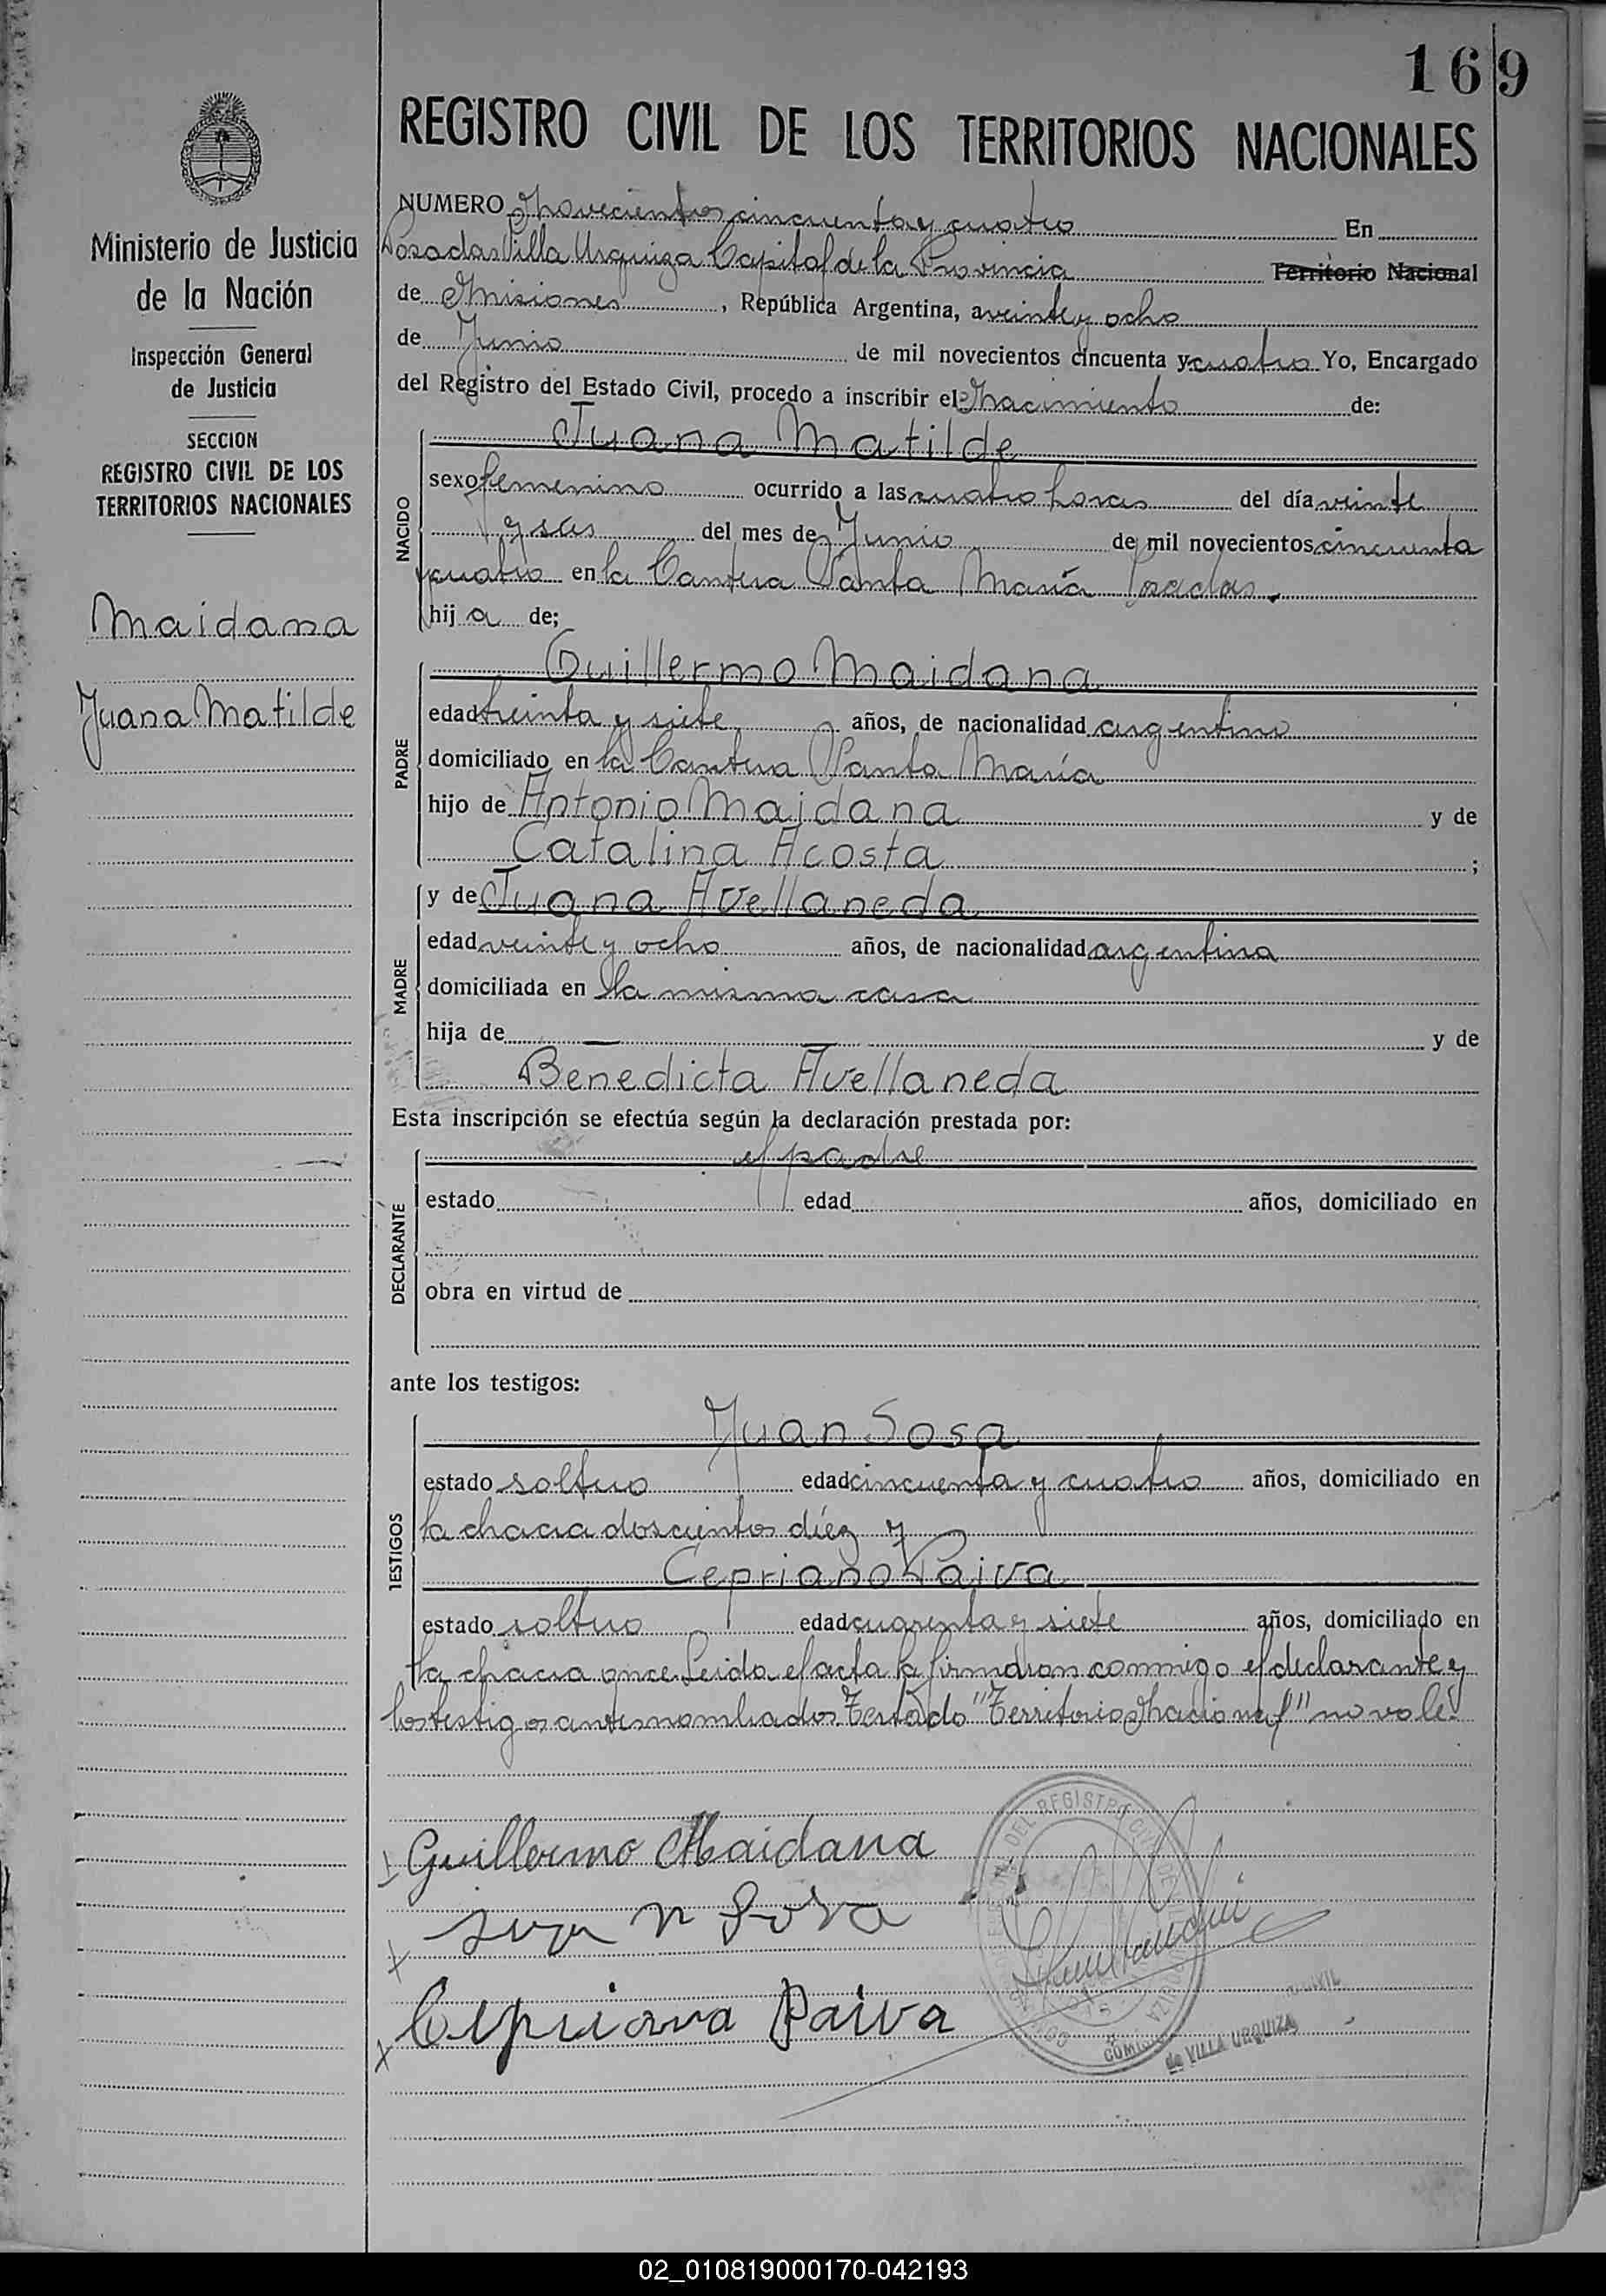 169
REGISTRO CIVIL DE LOS TERRITORIOS NACIONALES
Ministerio de Justicia
de la Nación
Inspección General
de Justicia
SECCION
REGISTRO CIVIL DE LOS
TERRITORIOS NACIONALES
Maidana
Juana Matilde
NUMERO Novecientos cincuenta y cuatro En
Posadas Villa Urquiza Capital de la Provincia Territorio Nacional
de Misiones, República Argentina, a veinte y ocho
de Junio de mil novecientos cincuenta y cuatro Yo, Encargado
del Registro del Estado Civil, procedo a inscribir el Nacimiento de:
NACIDO
Juana Matilde
sexo femenino ocurrido a las cuatro horas del día veinte
y seis del mes de Junio de mil novecientos cincuenta
y cuatro en la Cantera Santa María Posadas.
hija de;
PADRE
Guillermo Maidana
edad treinta y siete años, de nacionalidad argentino
domiciliado en la Cantera Santa María
hijo de Antonio Maidana y de
Catalina Acosta ;
MADRE
y de Juana Avellaneda
edad veinte y ocho años, de nacionalidad argentina
domiciliada en la misma casa
hija de — — y de
Benedicta Avellaneda
Esta inscripción se efectúa según la declaración prestada por:
DECLARANTE
el padre
estado edad años, domiciliado en
obra en virtud de
ante los testigos:
TESTIGOS
Juan Sosa
estado soltero edad cincuenta y cuatro años, domiciliado en
la chacra doscientos diéz y
Cepriano Paiva
estado soltero edad cuarenta y siete años, domiciliado en
la chacra once. Leida el acta la firmaron conmigo el declarante y
los testigos antes nombrados. Testado "Territorio Nacional" no vale.
Guillermo Maidana
Juan Sosa
Cepriano Paiva
DEL REGISTRO CIVIL
de VILLA URQUIZA
02_010819000170-042193